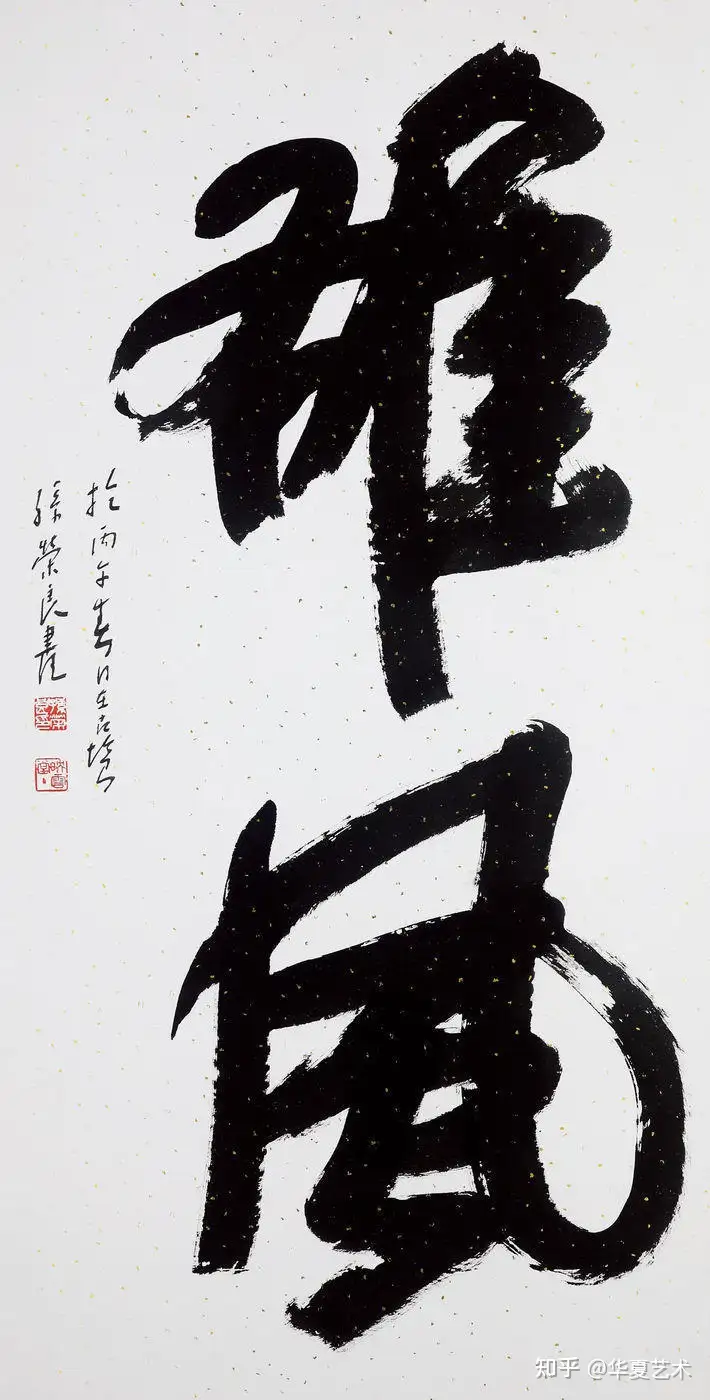 雅風
於丙午春日
孫榮良書
知乎 @华夏艺术